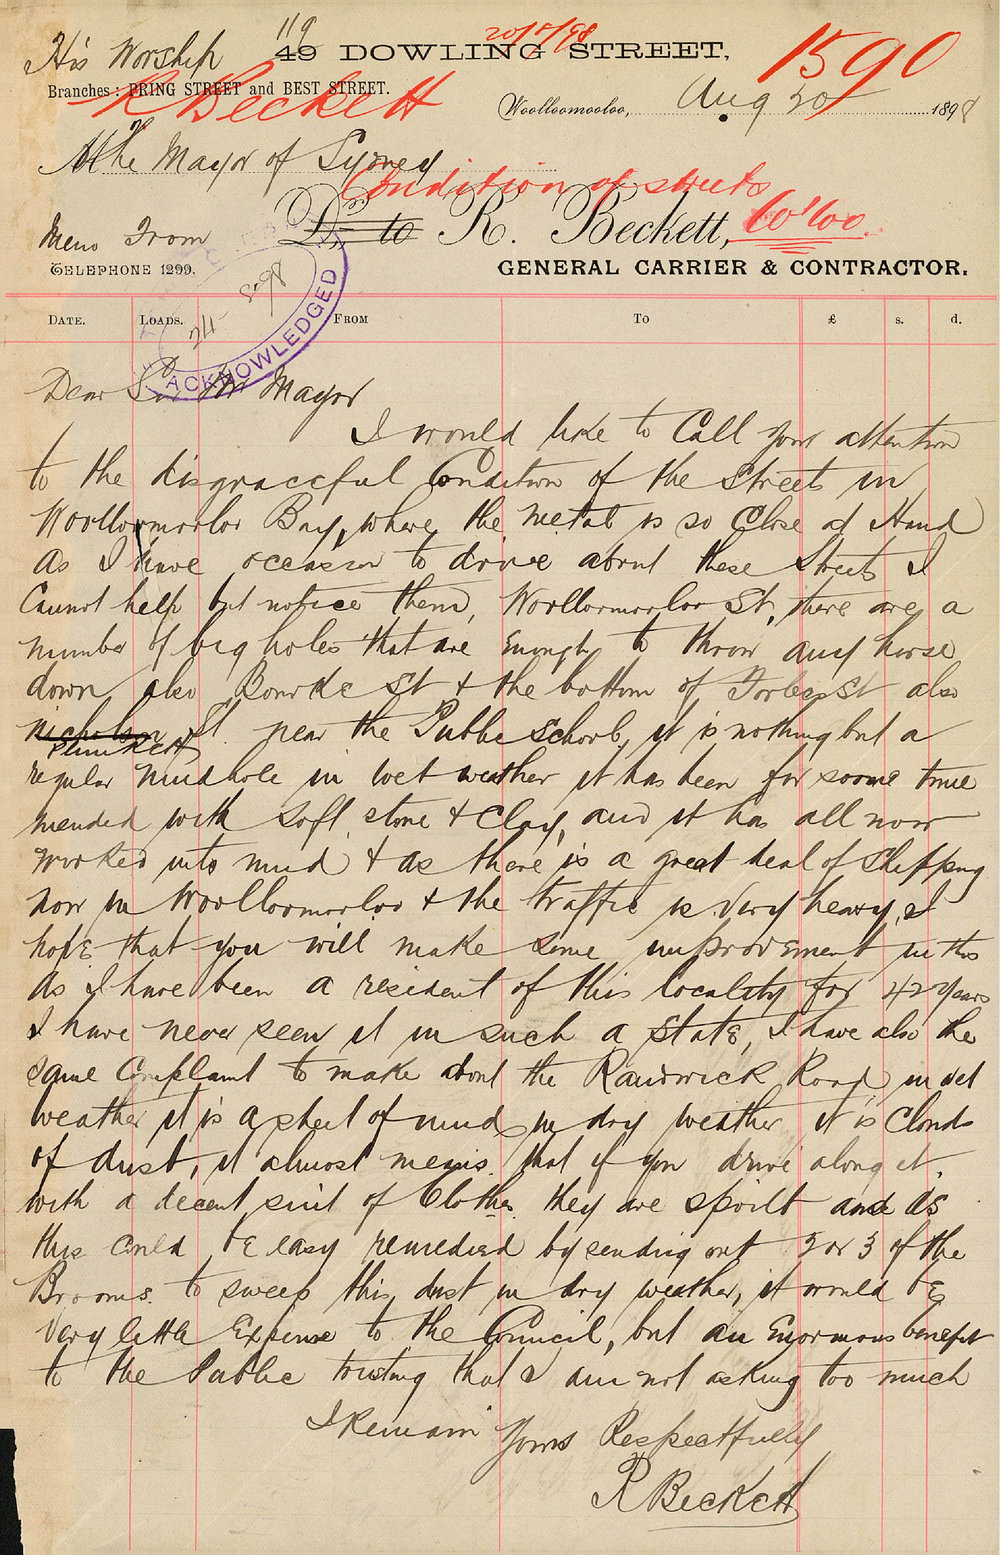 119
20/8/98
His Worship 49 DOWLING STREET, 1590
Branches: PRING STREET and BEST STREET.
R Beckett
Woolloomooloo, Aug 20 1898
The Mayor of Sydney
Condition of streets
Memo From Dr. to R. Beckett, W'loo.
TELEPHONE 1299.
GENERAL CARRIER & CONTRACTOR.
24 8 98
ACKNOWLEDGED
DATE. LOADS. FROM To £ s. d.
Dear Sir Mr Mayor
I would like to Call your attention
to the disgraceful Condition of the Streets in
Woolloomooloo Bay, where the metal is so Close at Hand
As I have occasion to drive about these Streets I
Cannot help but notice them, Woolloomooloo St, there are a
number of big holes that are Enough to throw any horse
down, also Bourke St & the bottom of Forbes St also
nicholson St. near the Public School, it is nothing but a
Plunkett
regular mudhole in wet weather it has been for soome time
mended with Soft stone & Clay, and it has all now
worked into mud & as there is a great deal of Shipping
now in Woolloomooloo & the traffic is Very heavy, I
hope that you will make Some improvement in this
As I have been a resident of this locality for 42 years
I have never seen it in such a State, I have also the
same Complaint to make about the Randwick Road, in wet
weather it is a sheet of mud in dry weather it is Clouds
of dust, it almost means that if you drive along it,
with a decent suit of Clothes they are spoilt and as
this could be easy remedied by sending out 2 or 3 of the
Brooms to sweep this dust in dry weather, it would be
Very little Expense to the Council, but an Enormous benefit
to the Public trusting that I am not asking too much
I Remain Yours Respectfully
R Beckett